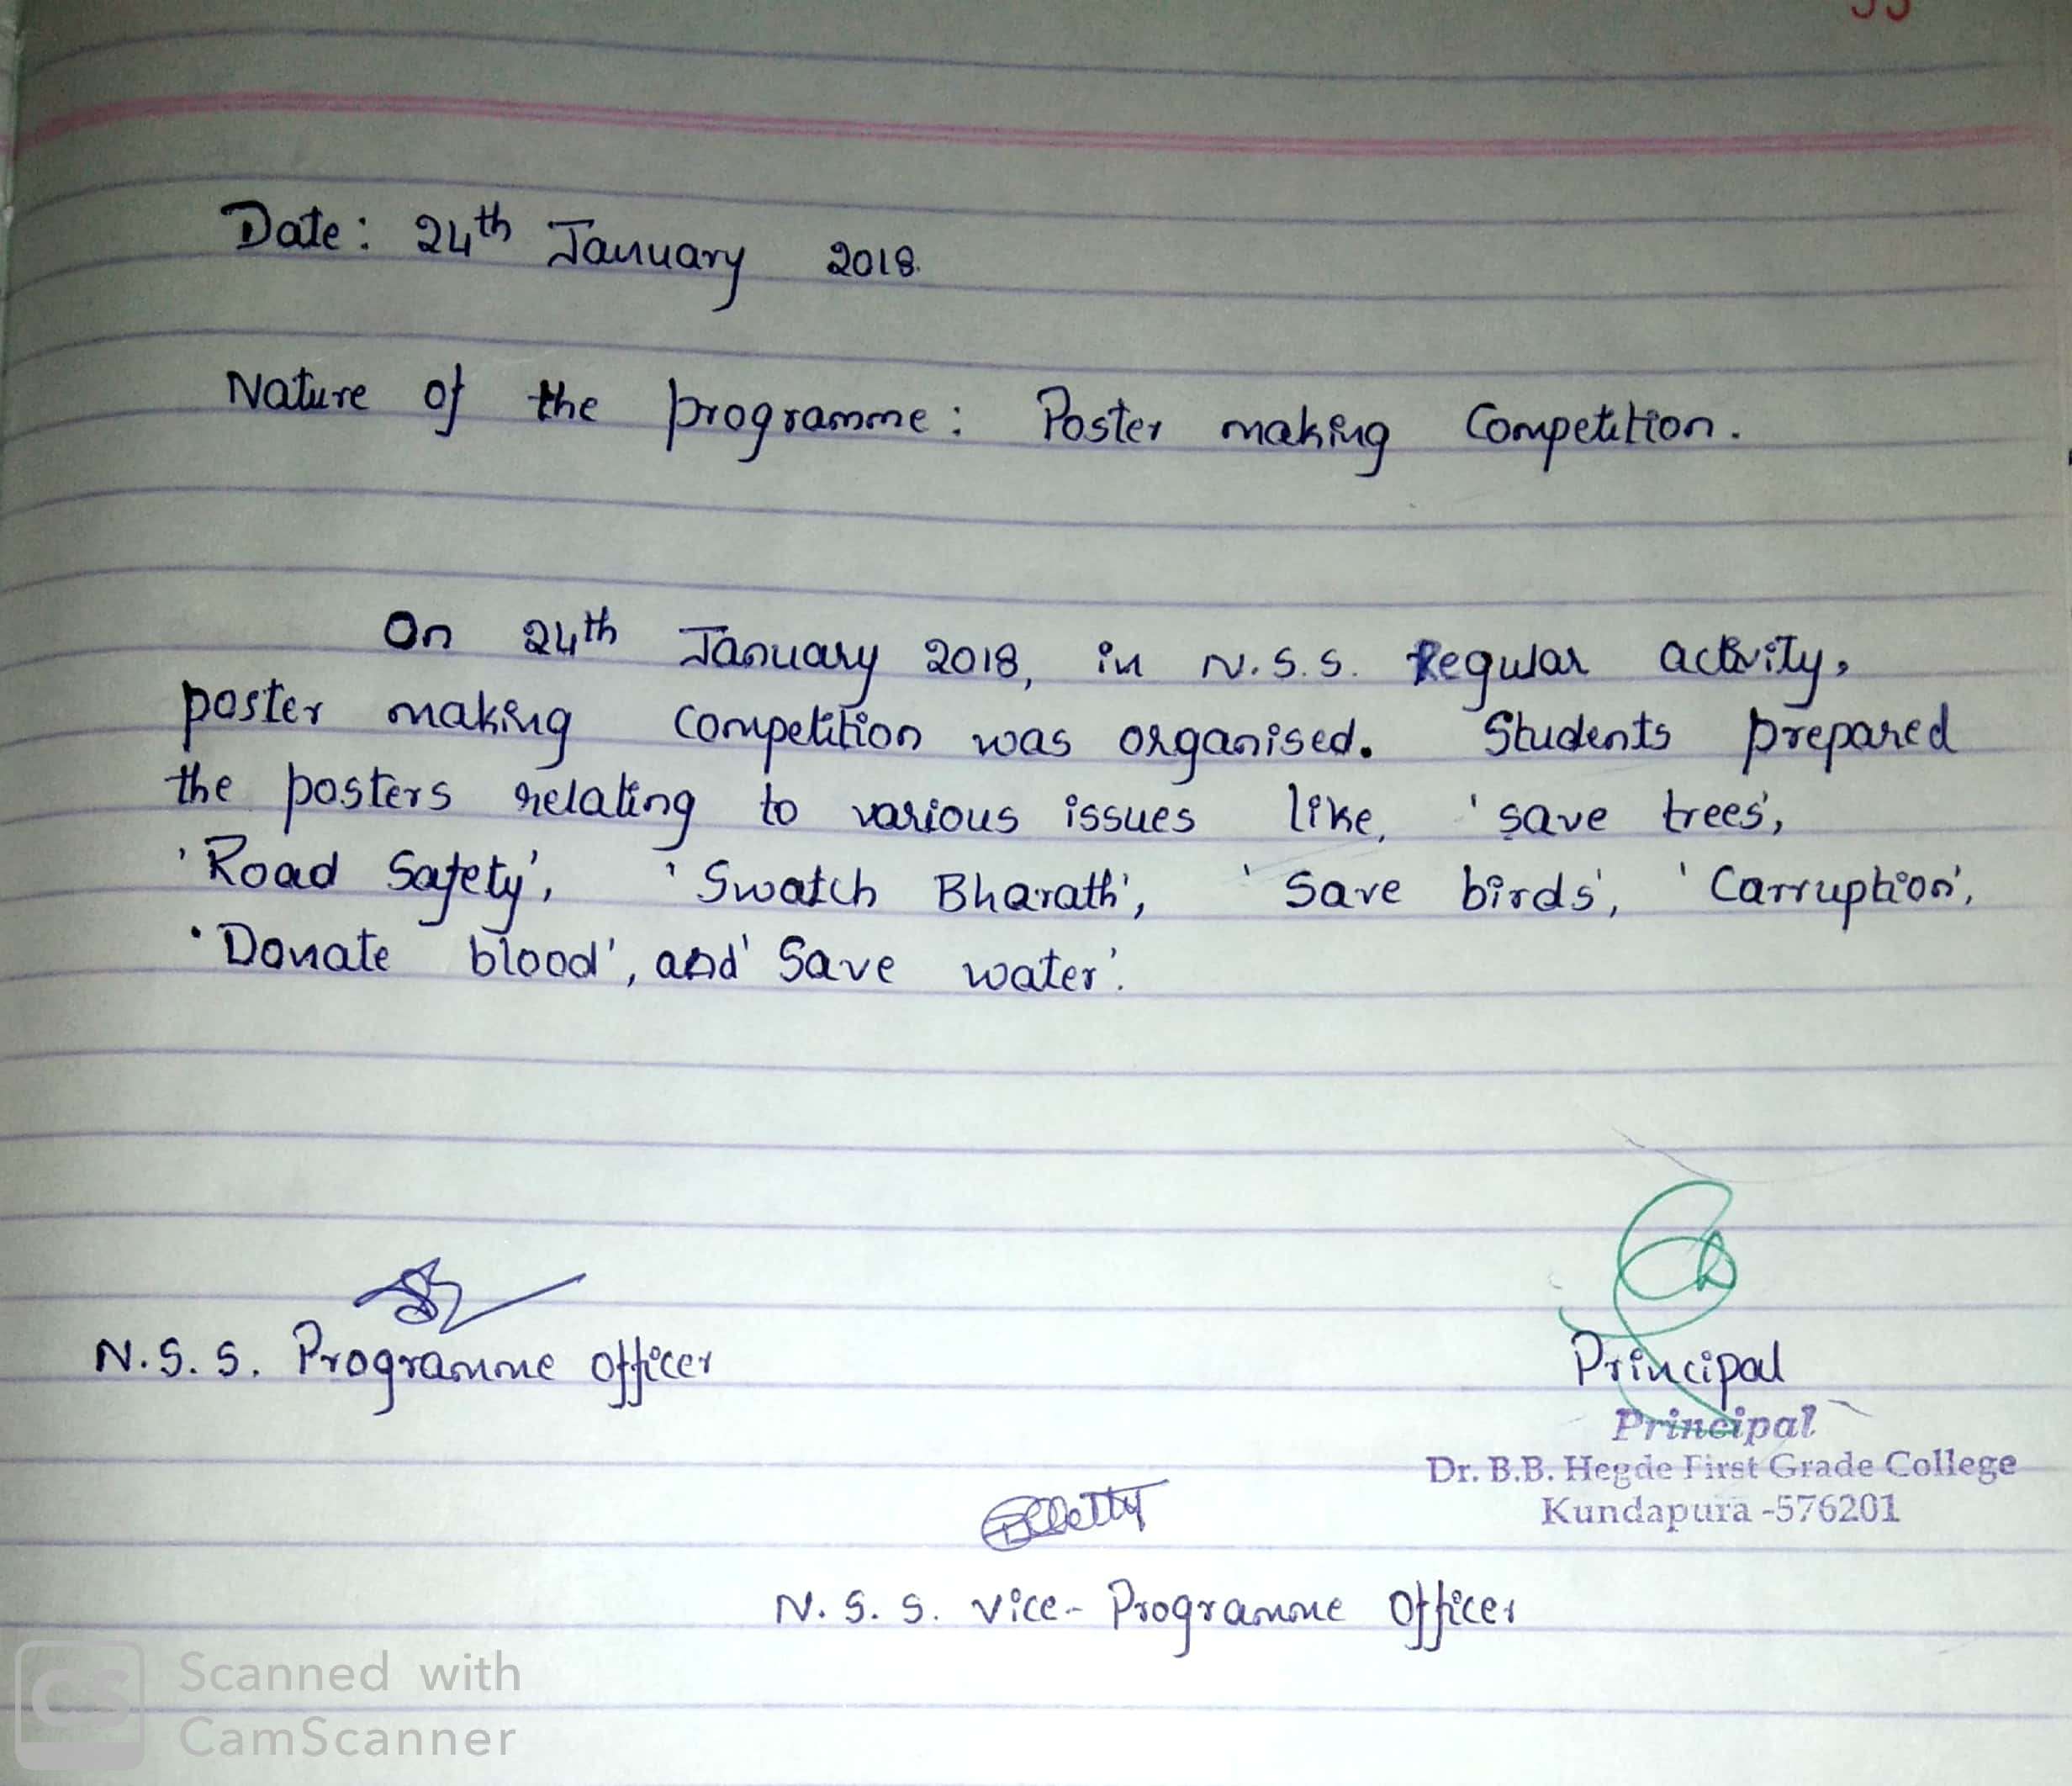 Date: 24th January 2018.
Nature of the programme: Poster making Competition.
On 24th January 2018, in N.S.S. Regular activity,
poster making competition was organised. Students prepared
the posters relating to various issues like, 'save trees',
'Road Safety', 'Swatch Bharath', 'Save birds', 'Carruption',
'Donate blood', and 'Save water'.
N.S.S. Programme Officer
Principal
Principal
Dr. B.B. Hegde First Grade College
Kundapura -576201
N.S.S. Vice-Programme Officer
CS Scanned with
CamScanner